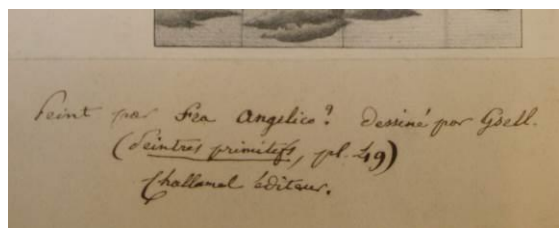 Peint par Fra Angelico? dessiné par Gsell.
(Peintres primitifs, pl. 49)
Challamel éditeur.